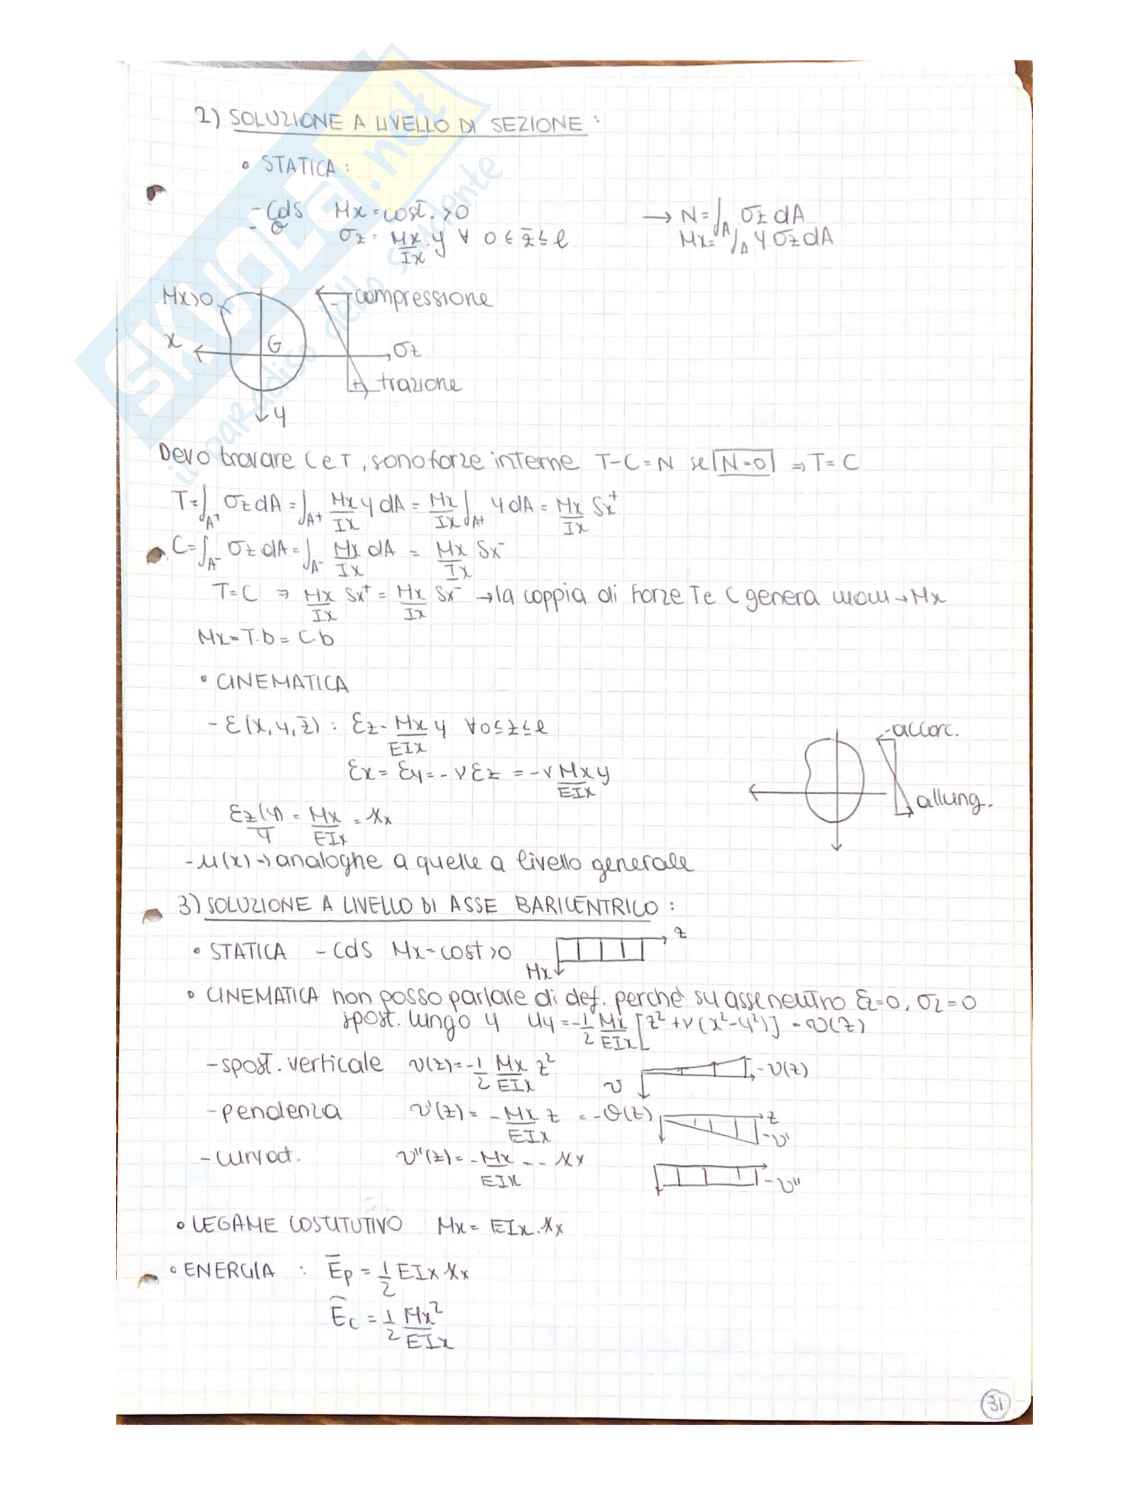 2) SOLUZIONE A LIVELLO DI SEZIONE :
• STATICA :
- CdS Mx = cost. >0 → N = ∫A σz dA
- σ σz = Mx/Ix · y ∀ 0 ≤ z ≤ l Mx = ∫A y σz dA
Mx>0 - compressione
x G σz
+ trazione
y
Devo trovare C e T, sono forze interne T-C = N se N=0 ⇒ T = C
T = ∫A+ σz dA = ∫A+ Mx/Ix y dA = Mx/Ix ∫A+ y dA = Mx/Ix Sx+
C = ∫A- σz dA = ∫A- Mx/Ix dA = Mx/Ix Sx-
T = C ⇒ Mx/Ix Sx+ = Mx/Ix Sx- → la coppia di forze T e C genera mom → Mx
Mx = T·b = C b
• CINEMATICA
- ε(x,y,z) : εz = Mx/EIx y ∀ 0 ≤ z ≤ l
accorc.
εx = εy = -ν εz = -ν Mx/EIx y
allung.
εz(y)/y = Mx/EIx = χx
- u(x) → analoghe a quelle a livello generale
3) SOLUZIONE A LIVELLO DI ASSE BARICENTRICO :
• STATICA - CdS Mx = cost >0 z
Mx
• CINEMATICA non posso parlare di def. perché su asse neutro εz=0, σz=0
spost. lungo y uy = -1/2 Mx/EIx [z² + ν(x²-y²)] = v(z)
- spost. verticale v(z) = -1/2 Mx/EIx z² v - v(z)
- pendenza v'(z) = - Mx/EIx z = -θ(z) z - v'
- curvat. v''(z) = - Mx/EIx = - χx - v''
• LEGAME COSTITUTIVO Mx = EIx · χx
• ENERGIA : Ep = 1/2 EIx · χx
Ec = 1/2 Mx²/EIx
31
SKUOLA.net
il paradiso dello studente